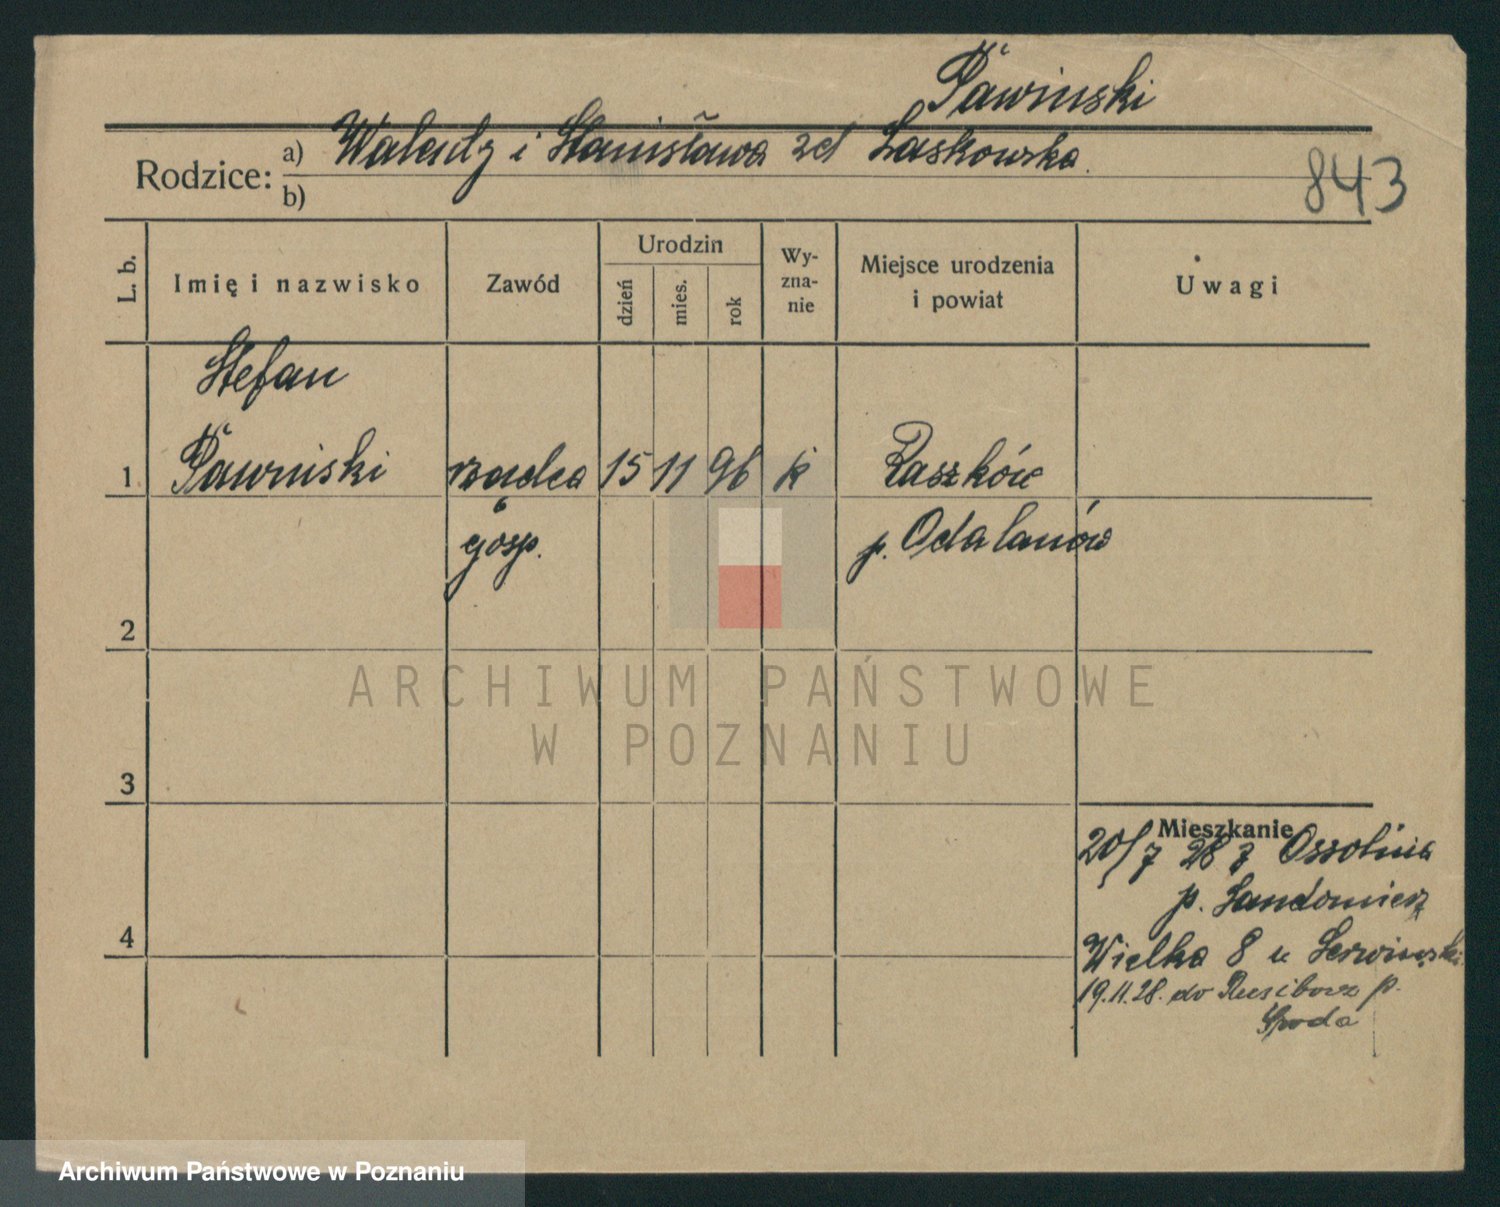 Pawiński
Rodzice: a) Walenty i Stanisława zd Laskowska.
b)
843
L. b.
Imię i nazwisko
Zawód
Urodzin
dzień
mies.
rok
Wy-
zna-
nie
Miejsce urodzenia
i powiat
Uwagi
Stefan
1 Pawiński rządca 15 11 96 k Raszków
gosp. p. Odalanów
2
ARCHIWUM PAŃSTWOWE
W POZNANIU
3
Mieszkanie
20/7 28 z Ossolina
p. Sandomierz
4
Wielka 8 u Serwiński
19.11.28. do Rusiborz p.
Środa
Archiwum Państwowe w Poznaniu